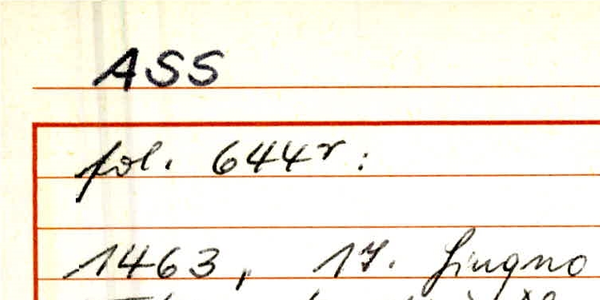 ASS
fol. 644r:
1463, 17. Giugno